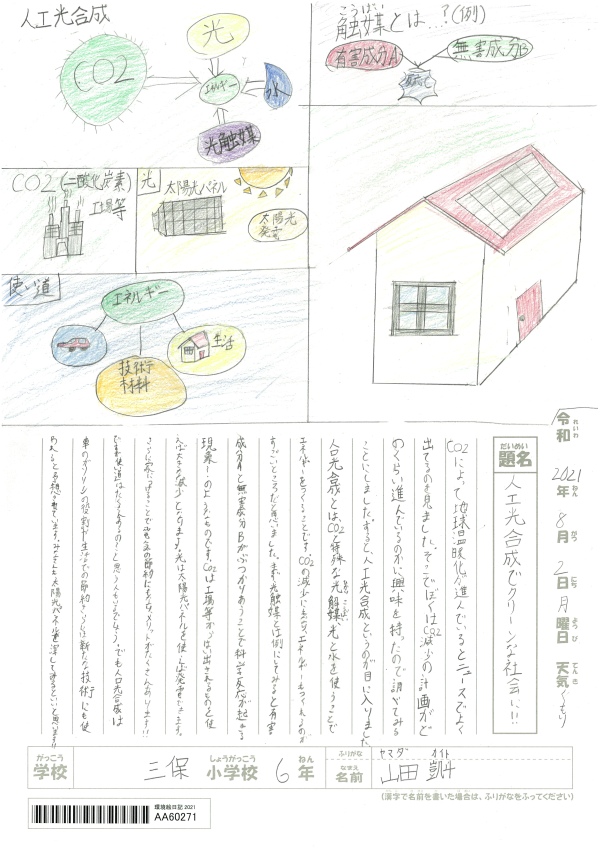 人工光合成
CO2
光
エネルギー
水
光触媒
こうばい
触媒とは…?(例)
有害成分A
無害成分B
CO2(二酸化炭素)
工場等
光
太陽光パネル
太陽光
発電
使い道
エネルギー
生活
技術
材料
令和 れいわ
2021年 ねん 8月 がつ 2日 にち 月曜日 ようび 天気 てんき くもり
だいめい
題名
人工光合成でクリーンな社会に!!
CO2によって地球温暖化が進んでいるとニュースでよく
出てるのを見ました。そこでぼくはCO2減少の計画がど
のくらい進んでいるのかに興味を持ったので調べてみる
ことにしました。すると、人工光合成というのが目に入りました。
人工光合成とは、CO2と特殊な光触媒、光と水を使うことで
エネルギーをつくることです。CO2の減少にもなり、エネルギーもつくれるのが
すごいところだと思いました。まず光触媒とは例にしてみると有害
成分Aと無害成分Bがぶつかりあうことで科学反応が起きる
現象…のようなものです。CO2は工場等からはい出されるものを使
えば大きな減少となります。光は太陽光パネルを使えば発電できます。
さらに家にはることで電気の節約にもなり、メリットがたくさんあります!!
でも使い道はたくさんあるの?と思う人もいるでしょう。でも人工光合成は
車のガソリンの役割や生活での節約、さらには新たな技術にも使
われると予想されています。みなさんも太陽光パネルを意識して送るといいと思います!!
がっこう
学校
三保 小学校 しょうがっこう 6年 ねん
ふりがな ヤマダ カイト
なまえ
名前 山田 凱斗
(漢字で名前を書いた場合は、ふりがなをふってください)
環境絵日記 2021
AA60271